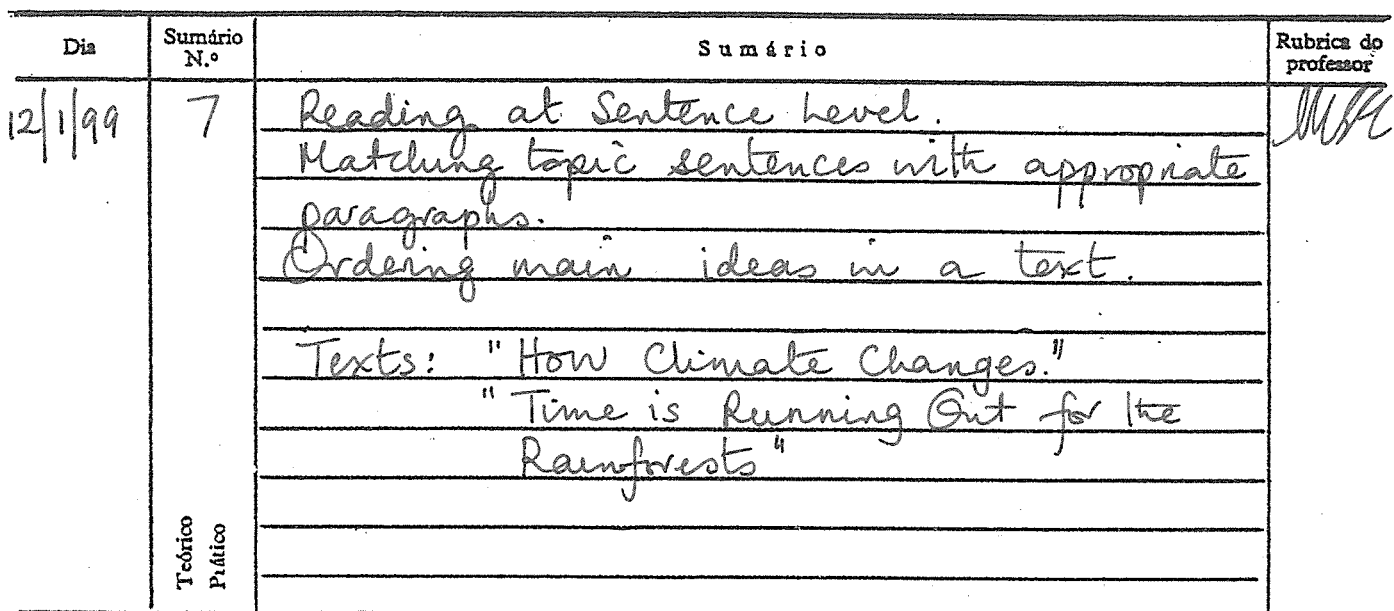 Dia
Sumário
N.º
Sumário
Rubrica do
professor
12/1/99
7
Reading at Sentence Level.
Matching topic sentences with appropriate
paragraphs.
Ordering main ideas in a text.
Texts: "How Climate Changes."
"Time is Running Out for the
Rainforests"
Teórico
Prático